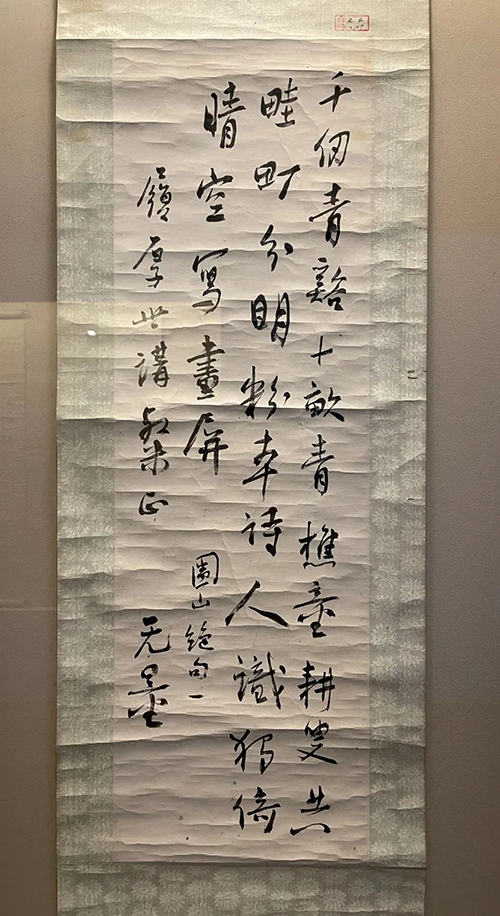 千仞青谿十畝青樵童耕叟共
畦町分明粉本詩人識獨倚
晴空寫畫屏
山絕句一
嶺厚世講粲正
无量